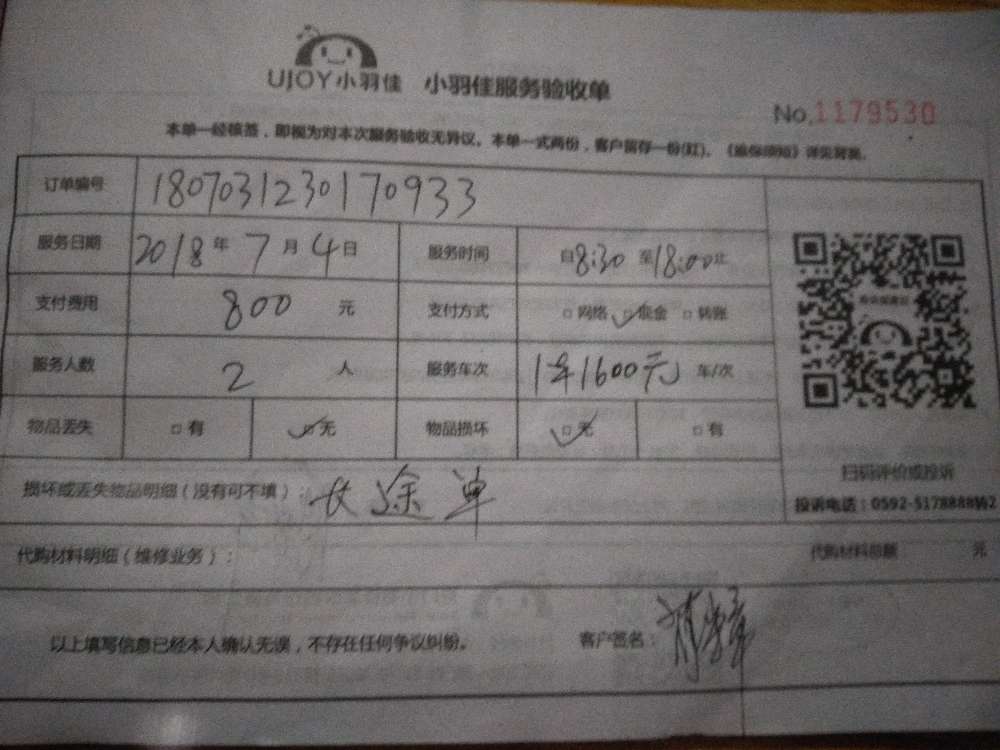 UJOY小羽佳 小羽佳服务验收单
No.1179530
本单一经核签，即视为对本次服务验收无异议。本单一式两份，客户留存一份(红)。《维保须知》详见背面。
订单编号 180703123017093​3
服务日期 2018年7月4日 服务时间 自8:30至18:00止
支付费用 800 元 支付方式 □网络 ☑现金 □转账
服务人数 2 人 服务车次 1车1600元 车/次
物品丢失 □有 ☑无 物品损坏 ☑无 □有
扫码评价或投诉
损坏或丢失物品明细（没有可不填）：长途单
投诉电话：0592-5178888转2
代购材料明细（维修业务）： 代购材料总额 元
以上填写信息已经本人确认无误，不存在任何争议纠纷。 客户签名：